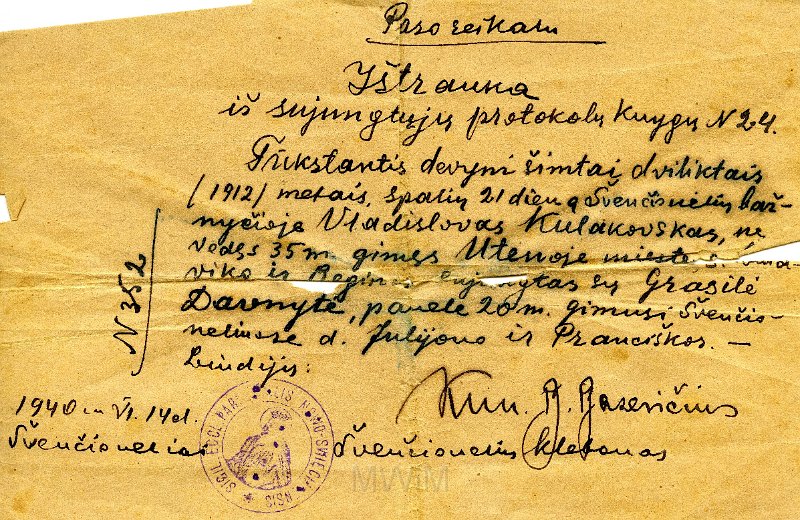 Paso reikalu
Ištrauka
iš sujungtųjų protokolų knygų N 24.
Tūkstantis devyni šimtai dviliktais
/1912/ metais, spalių 21 dieną Švenčionelių baž-
nyčioje Vladislovas Kulakovskas, ne
vedęs 35 m. gimęs Utenoje mieste, s.
ir Reginos sujungtas su Grasilė
Daunytė, panelė 20 m. gimusi Švenčio-
neliuose d. Julijono ir Pranciškos. —
Liudijis:
N 352
1940 m VI. 14 d.
Švenčioneliai
Kun. B.
Švenčionelių klebonas
SIGIL. ECCL. PAR
MWM